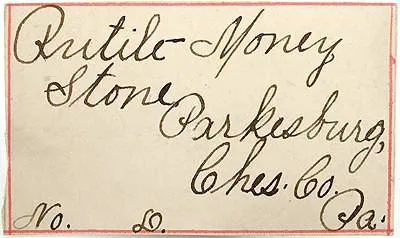 Rutile Money
Stone
Parkesburg,
Ches. Co.
Pa.
No. D.